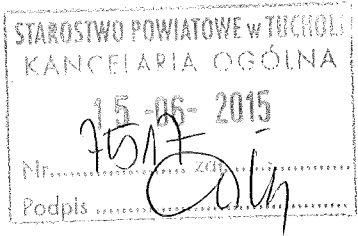 STAROSTWO POWIATOWE w TUCHOLI
KANCELARIA OGÓLNA
15 -06- 2015
Nr 7517 zał
Podpis